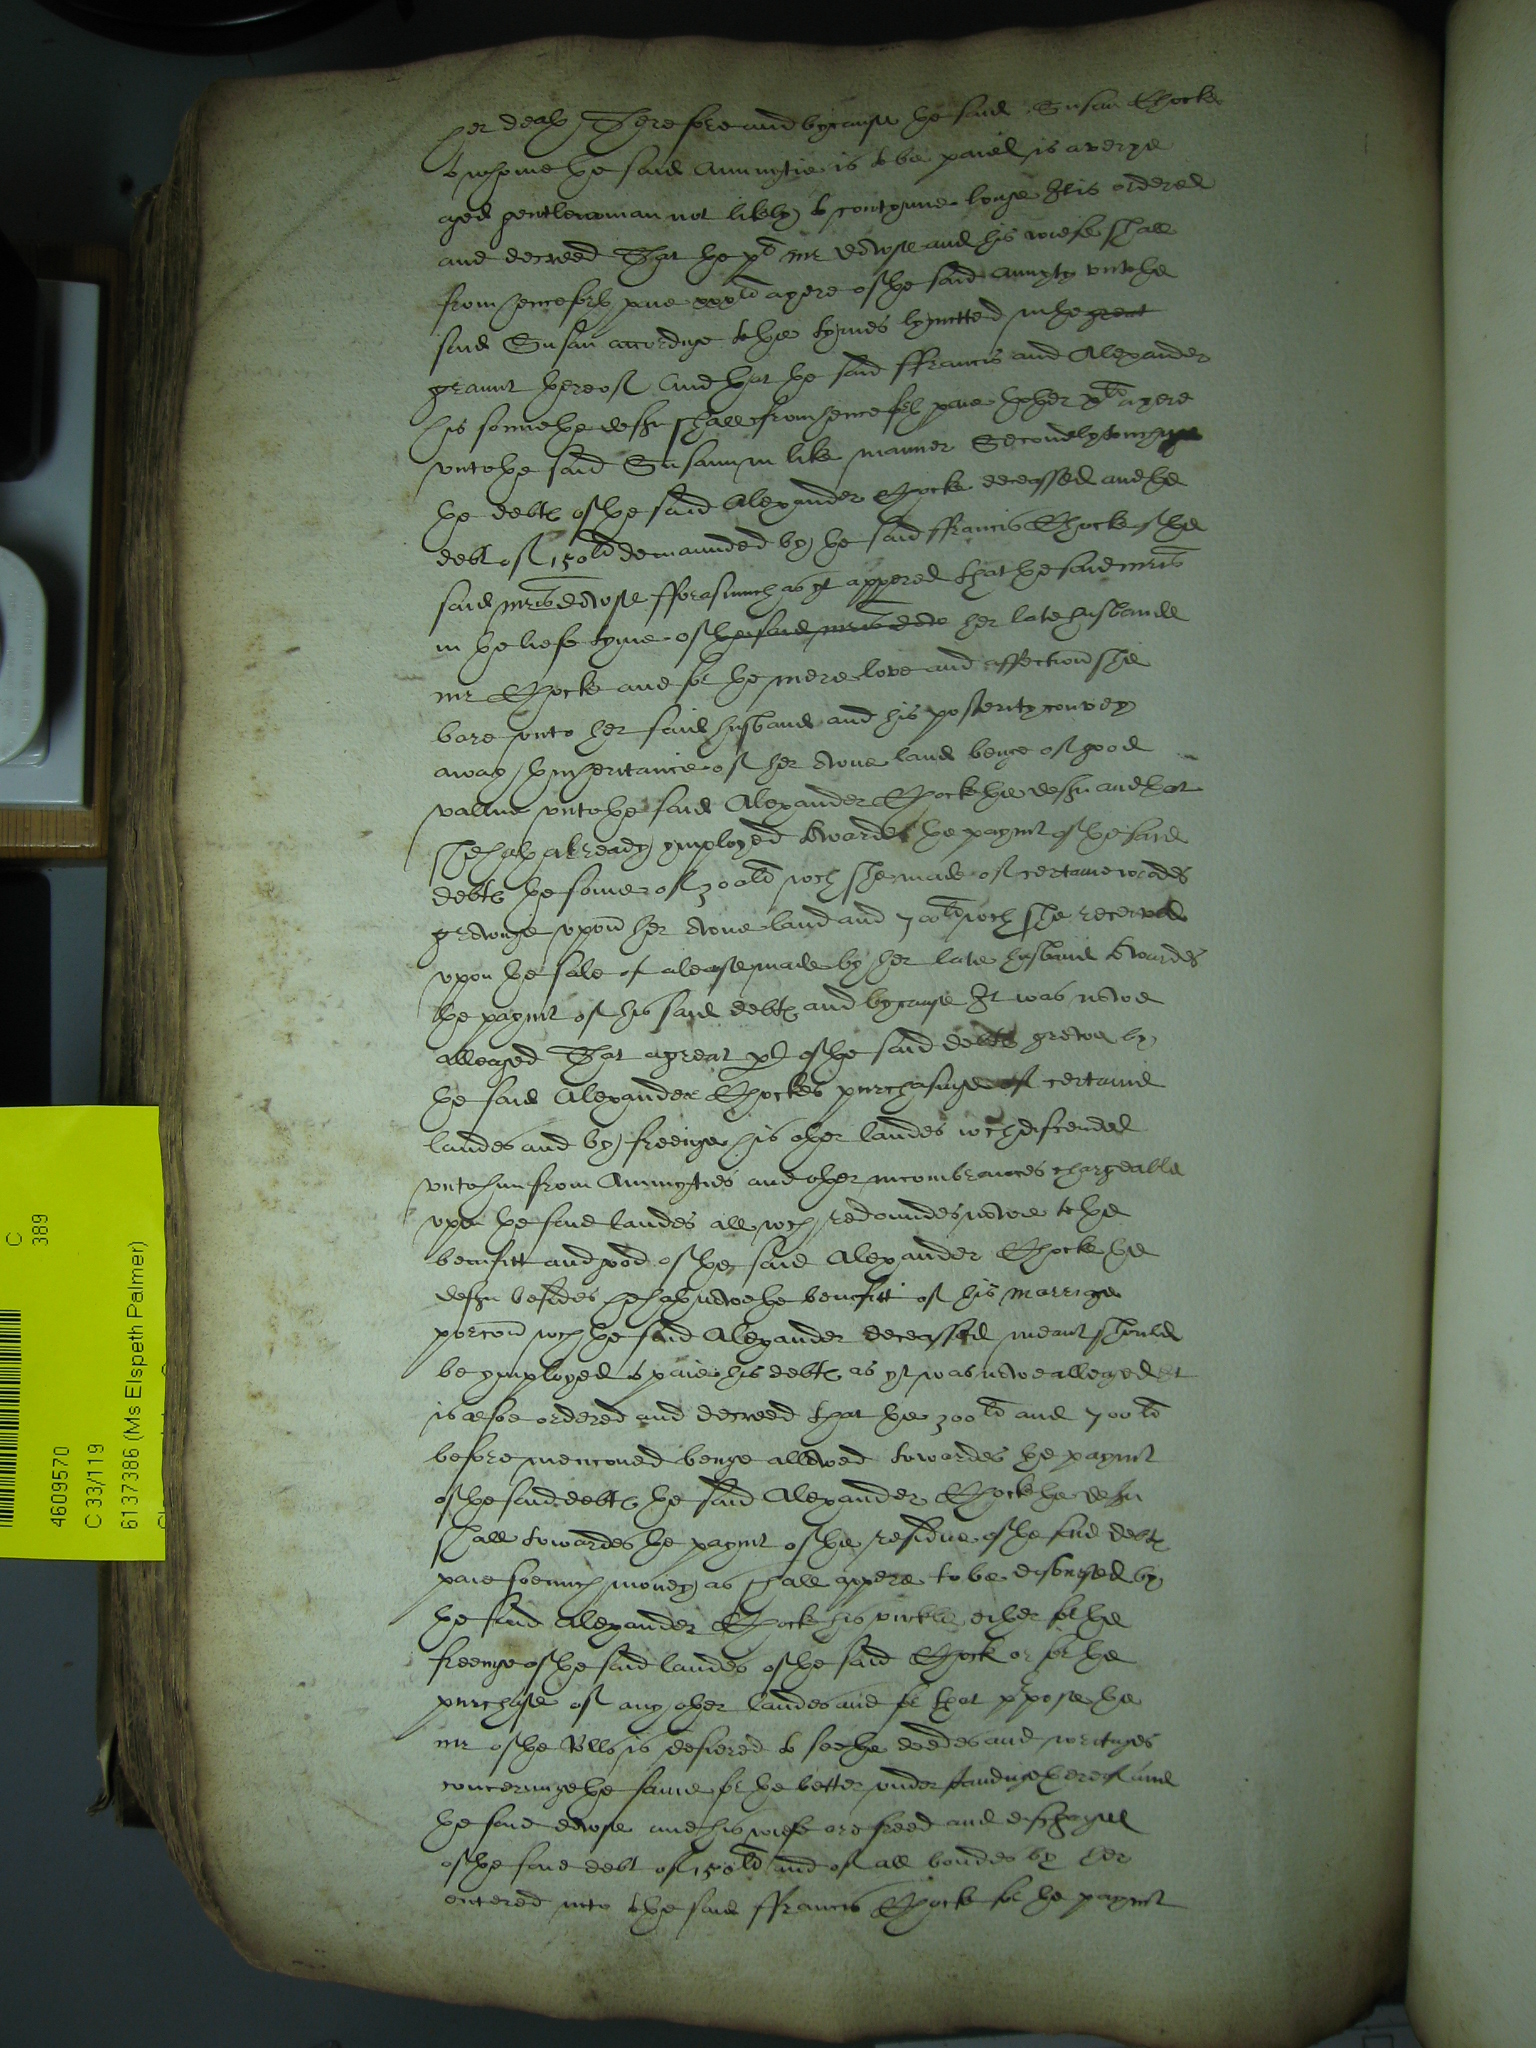 her death Therefore and bycause the said Susan Chocke
to whome the said Annuytie is to be paied is a verye
aged gentlewoman not likely to contynue longe It is ordered
and decreed That the pld mr Edwyn and his wiefe shall
from henceforth paie xxx ld a yere of the said Annuyty vnto the
said Susan accordinge to the tymes lymitted in the great
graunt thereof And that the said ffrancis and Alexander
his sonne the deft shall from henceforth paie thother xld a yere
vnto the said Susann in like manner Secondly touchinge
the debtes of the said Alexander Chocke deceassed and the
debt of 150ld demaunded by the said ffrancis Chocke of the
said mris forasmuch as yt appered that the said mris
in the liefe tyme of the said mris her late husbande
mr Chocke and for the mere love and affection she
bare vnto her said husband and his posterity convey
away thinheritance of her owne land beinge of good
vallue vnto the said Alexander Chocke the deft and that
she hath already ymployed towardes the paymt of the said
debtes the some of 300ld wch she made of certaine woodes
growinge vpon her owne land and 700ld wch she receaved
vpon the sale of a lease made by her late husband towardes
the paymt of his said debtes and bycause It was nowe
alleaged That a great pt of the said debtes grewe by
the said Alexander Chockes purchasinge of certaine
landes and by freeinge his other landes wch discended
vnto him from Annuyties and other incombrances chargeable
vpon the said landes all wch redoundes nowe to the
benifitt and good of the said Alexander Chocke the
deft besides he hath nowe the benifitt of his marriage
porcion wch the said Alexander deceassed meant should
be ymployed to paie his debtes as yt was nowe alleaged It
is therefore ordered and decreed that the 300ld and 700ld
before mencioned beinge allowed towardes the paymt
of the said debtes the said Alexander Chocke the deft
shall towardes the paymt of the residue of the said debtes
paie soe much money as shall appere to be disbursed by
the said Alexander Chocke his vnckle either for the
freeinge of the said landes of the said Chock or for the
purchase of any other landes and for that purpose the
mr of the Rolls is desiered to see the deedes and writinges
concerninge the same for the better vnderstandinge thereof and
the said and his wiefe are freed and discharged
of the said debt of 150ld and of all bondes by her
entered into to the said ffrancis Chocke for the paymt
C
389
4609570
C 33/119
6137386 (Ms Elspeth Palmer)